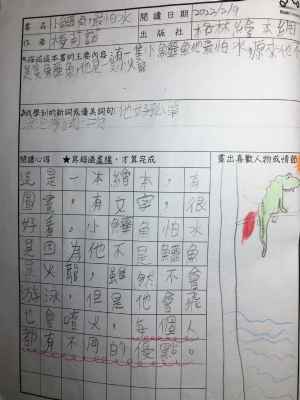 書名 小鱷魚最怕水 閱讀日期 2022/2/9
作者 出版社 格林繪本網
描述這本書的主要內容:有一隻小鱷魚他最怕水,原來他不
是鱷魚,他是一隻火龍
我學到的新詞或優美詞句:他好孤單
閱讀心得 ★寫超過虛線,才算完成 畫出喜歡人物或情節
這是一本繪本,有
圖畫,有文字,很
好看,小鱷魚怕水
是因為他不是鱷魚
是火龍,雖然不會
游泳,但是他會飛
也會噴火,每個人
都有不同的優點。